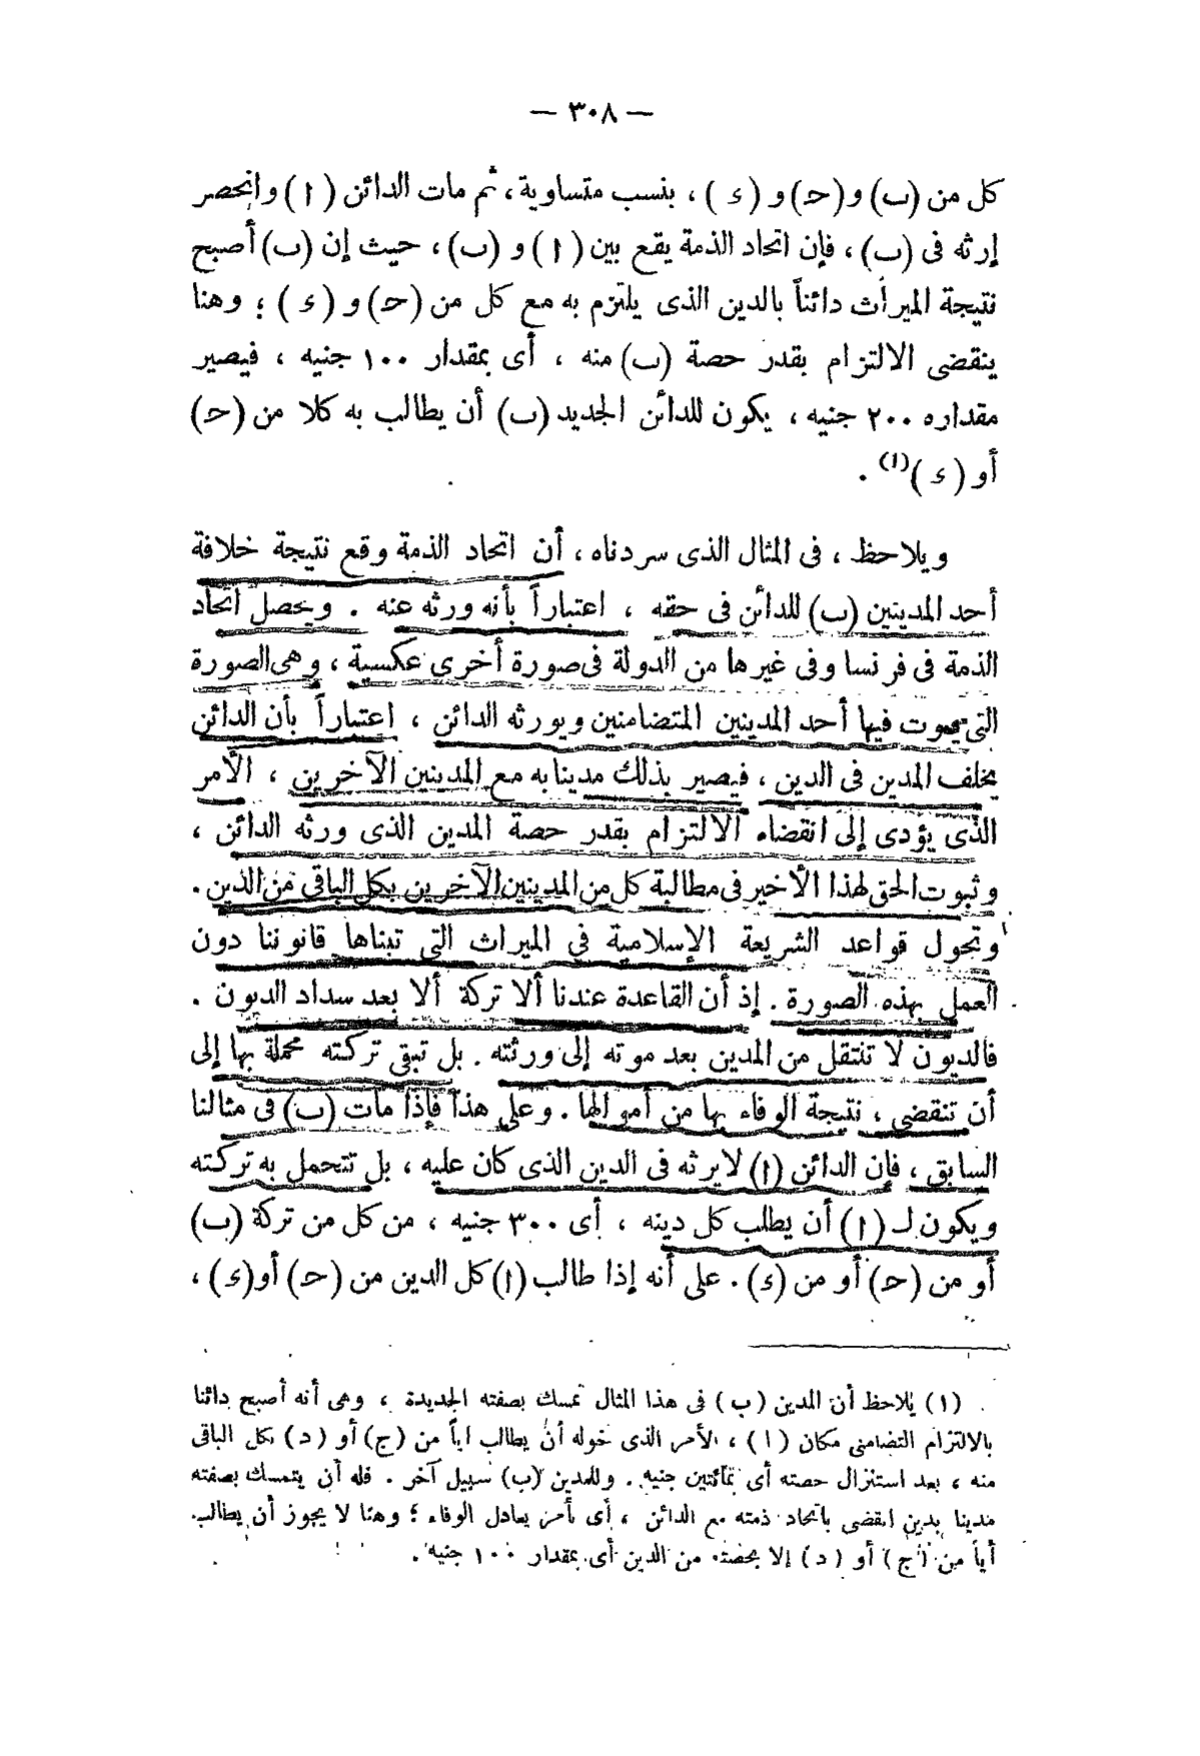 — ٣٠٨ —
كل من (ب) و (حـ) و ( ء ) ، بنسب متساوية ، ثم مات الدائن ( ا ) وانحصر
إرثه فى (ب) ، فإن اتحاد الذمة يقع بين ( ا ) و (ب) ، حيث إن (ب) أصبح
نتيجة الميراث دائناً بالدين الذى يلتزم به مع كل من (حـ) و ( ء ) ؛ وهنا
ينقضى الالتزام بقدر حصة (ب) منه ، أى بمقدار ١٠٠ جنيه ، فيصير
مقداره ٢٠٠ جنيه ، يكون للدائن الجديد (ب) أن يطالب به كلا من (حـ)
أو ( ء )(١) .
ويلاحظ ، فى المثال الذى سردناه ، أن اتحاد الذمة وقع نتيجة خلافة
أحد المدينين (ب) للدائن فى حقه ، اعتباراً بأنه ورثه عنه . ويحصل اتحاد
الذمة فى فرنسا وفى غيرها من الدولة فى صورة أخرى عكسية ، وهى الصورة
التى يموت فيها أحد المدينين المتضامنين ويورثه الدائن ، اعتباراً بأن الدائن
يخلف المدين فى الدين ، فيصير بذلك مدينا به مع المدينين الآخرين ، الأمر
الذى يؤدى إلى انقضاء الالتزام بقدر حصة المدين الذى ورثه الدائن ،
وثبوت الحق لهذا الأخير فى مطالبة كل من المدينين الآخرين بكل الباقى من الدين .
وتحول قواعد الشريعة الإسلامية فى الميراث التى تبناها قانوننا دون
العمل بهذه الصورة . إذ أن القاعدة عندنا ألا تركة ألا بعد سداد الديون .
فالديون لا تنتقل من المدين بعد موته إلى ورثته . بل تبقى تركته محملة بها إلى
أن تنقضى ، نتيجة الوفاء بها من أموالها . وعلى هذا فإذا مات (ب) فى مثالنا
السابق ، فإن الدائن (ا) لا يرثه فى الدين الذى كان عليه ، بل تتحمل به تركته
ويكون لـ (ا) أن يطلب كل دينه ، أى ٣٠٠ جنيه ، من كل من تركة (ب)
أو من (حـ) أو من (ء) . على أنه إذا طالب (ا) كل الدين من (حـ) أو (ء) ،
(١) يلاحظ أن المدين (ب) فى هذا المثال تمسك بصفته الجديدة ، وهى أنه أصبح دائنا
بالالتزام التضامنى مكان (ا) ، الأمر الذى خوله أن يطالب اياً من (ج) أو (د) بكل الباقى
منه ، بعد استنزال حصته أى بمائتين جنيه . وللمدين (ب) سبيل آخر . فله أن يتمسك بصفته
مدينا بدين انقضى باتحاد ذمته مع الدائن ، أى بأمر يعادل الوفاء ؛ وهنا لا يجوز أن يطالب
أياً من (ج) أو (د) إلا بحصته من الدين أى بمقدار ١٠٠ جنيه .